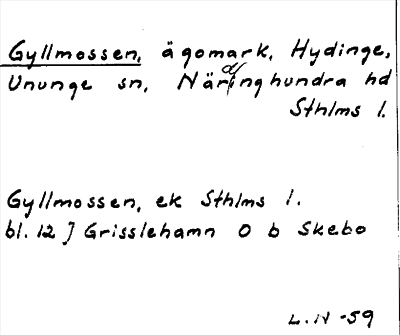 Gyllmossen, ägomark, Hydinge,
Ununge sn, Närdinghundra hd
Sthlms l.
Gyllmossen, ek Sthlms l.
bl. 12 J Grisslehamn O b Skebo
L.N -59